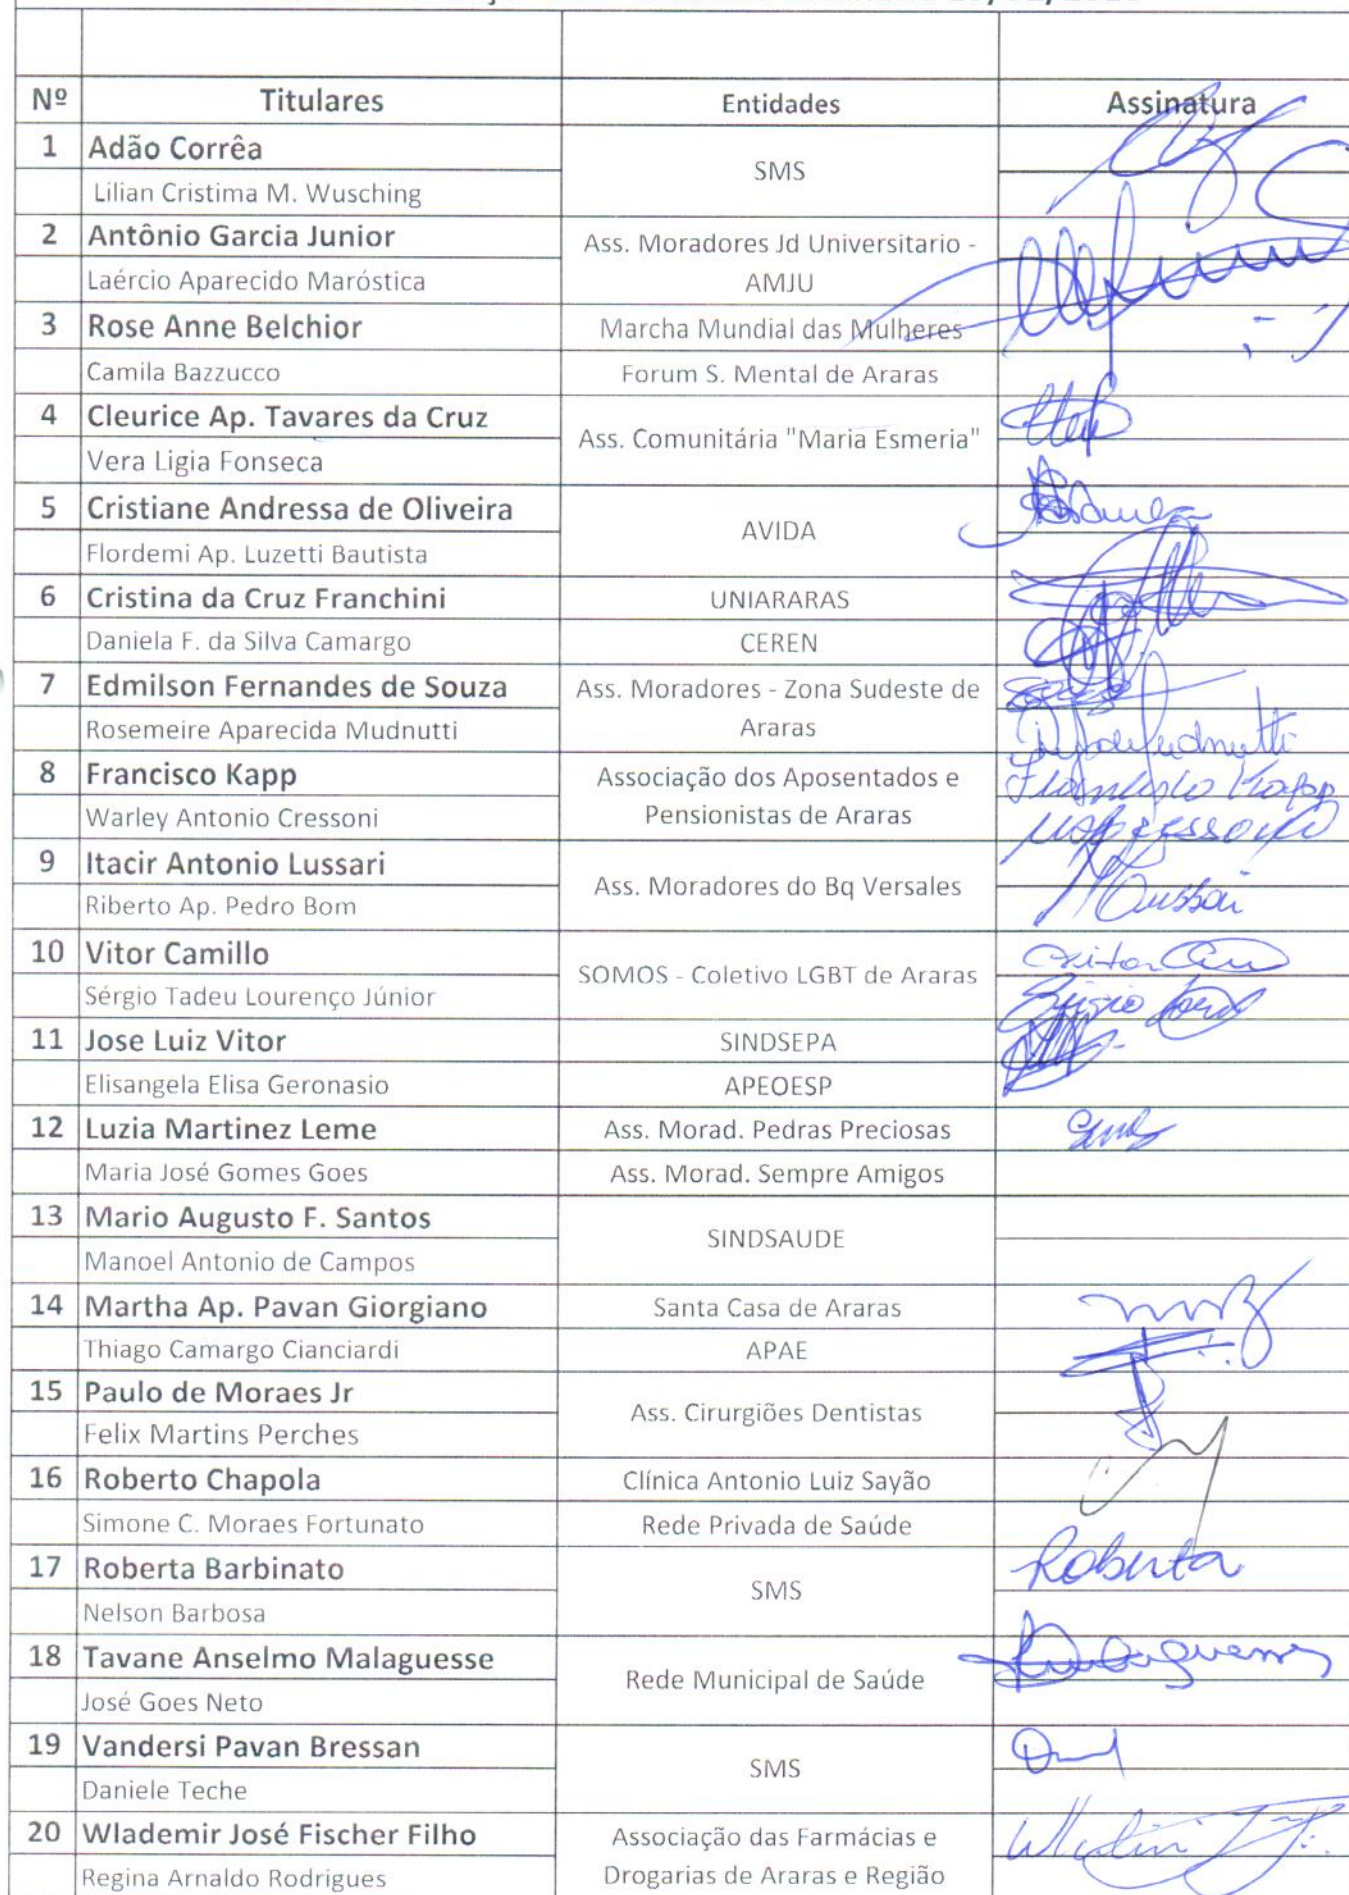 Nº Titulares Entidades Assinatura
1 Adão Corrêa
SMS
Lilian Cristima M. Wusching
2 Antônio Garcia Junior
Ass. Moradores Jd Universitario -
Laércio Aparecido Maróstica AMJU
3 Rose Anne Belchior Marcha Mundial das Mulheres
Camila Bazzucco Forum S. Mental de Araras
4 Cleurice Ap. Tavares da Cruz
Ass. Comunitária "Maria Esmeria"
Vera Ligia Fonseca
5 Cristiane Andressa de Oliveira
AVIDA
Flordemi Ap. Luzetti Bautista
6 Cristina da Cruz Franchini UNIARARAS
Daniela F. da Silva Camargo CEREN
7 Edmilson Fernandes de Souza Ass. Moradores - Zona Sudeste de
Rosemeire Aparecida Mudnutti Araras
8 Francisco Kapp Associação dos Aposentados e Francisco Kapp
Warley Antonio Cressoni Pensionistas de Araras
9 Itacir Antonio Lussari
Ass. Moradores do Bq Versales
Riberto Ap. Pedro Bom
10 Vitor Camillo
SOMOS - Coletivo LGBT de Araras
Sérgio Tadeu Lourenço Júnior
11 Jose Luiz Vitor SINDSEPA
Elisangela Elisa Geronasio APEOESP
12 Luzia Martinez Leme Ass. Morad. Pedras Preciosas
Maria José Gomes Goes Ass. Morad. Sempre Amigos
13 Mario Augusto F. Santos
SINDSAUDE
Manoel Antonio de Campos
14 Martha Ap. Pavan Giorgiano Santa Casa de Araras
Thiago Camargo Cianciardi APAE
15 Paulo de Moraes Jr
Ass. Cirurgiões Dentistas
Felix Martins Perches
16 Roberto Chapola Clínica Antonio Luiz Sayão
Simone C. Moraes Fortunato Rede Privada de Saúde
17 Roberta Barbinato Roberta
SMS
Nelson Barbosa
18 Tavane Anselmo Malaguesse
Rede Municipal de Saúde
José Goes Neto
19 Vandersi Pavan Bressan
SMS
Daniele Teche
20 Wlademir José Fischer Filho Associação das Farmácias e
Regina Arnaldo Rodrigues Drogarias de Araras e Região